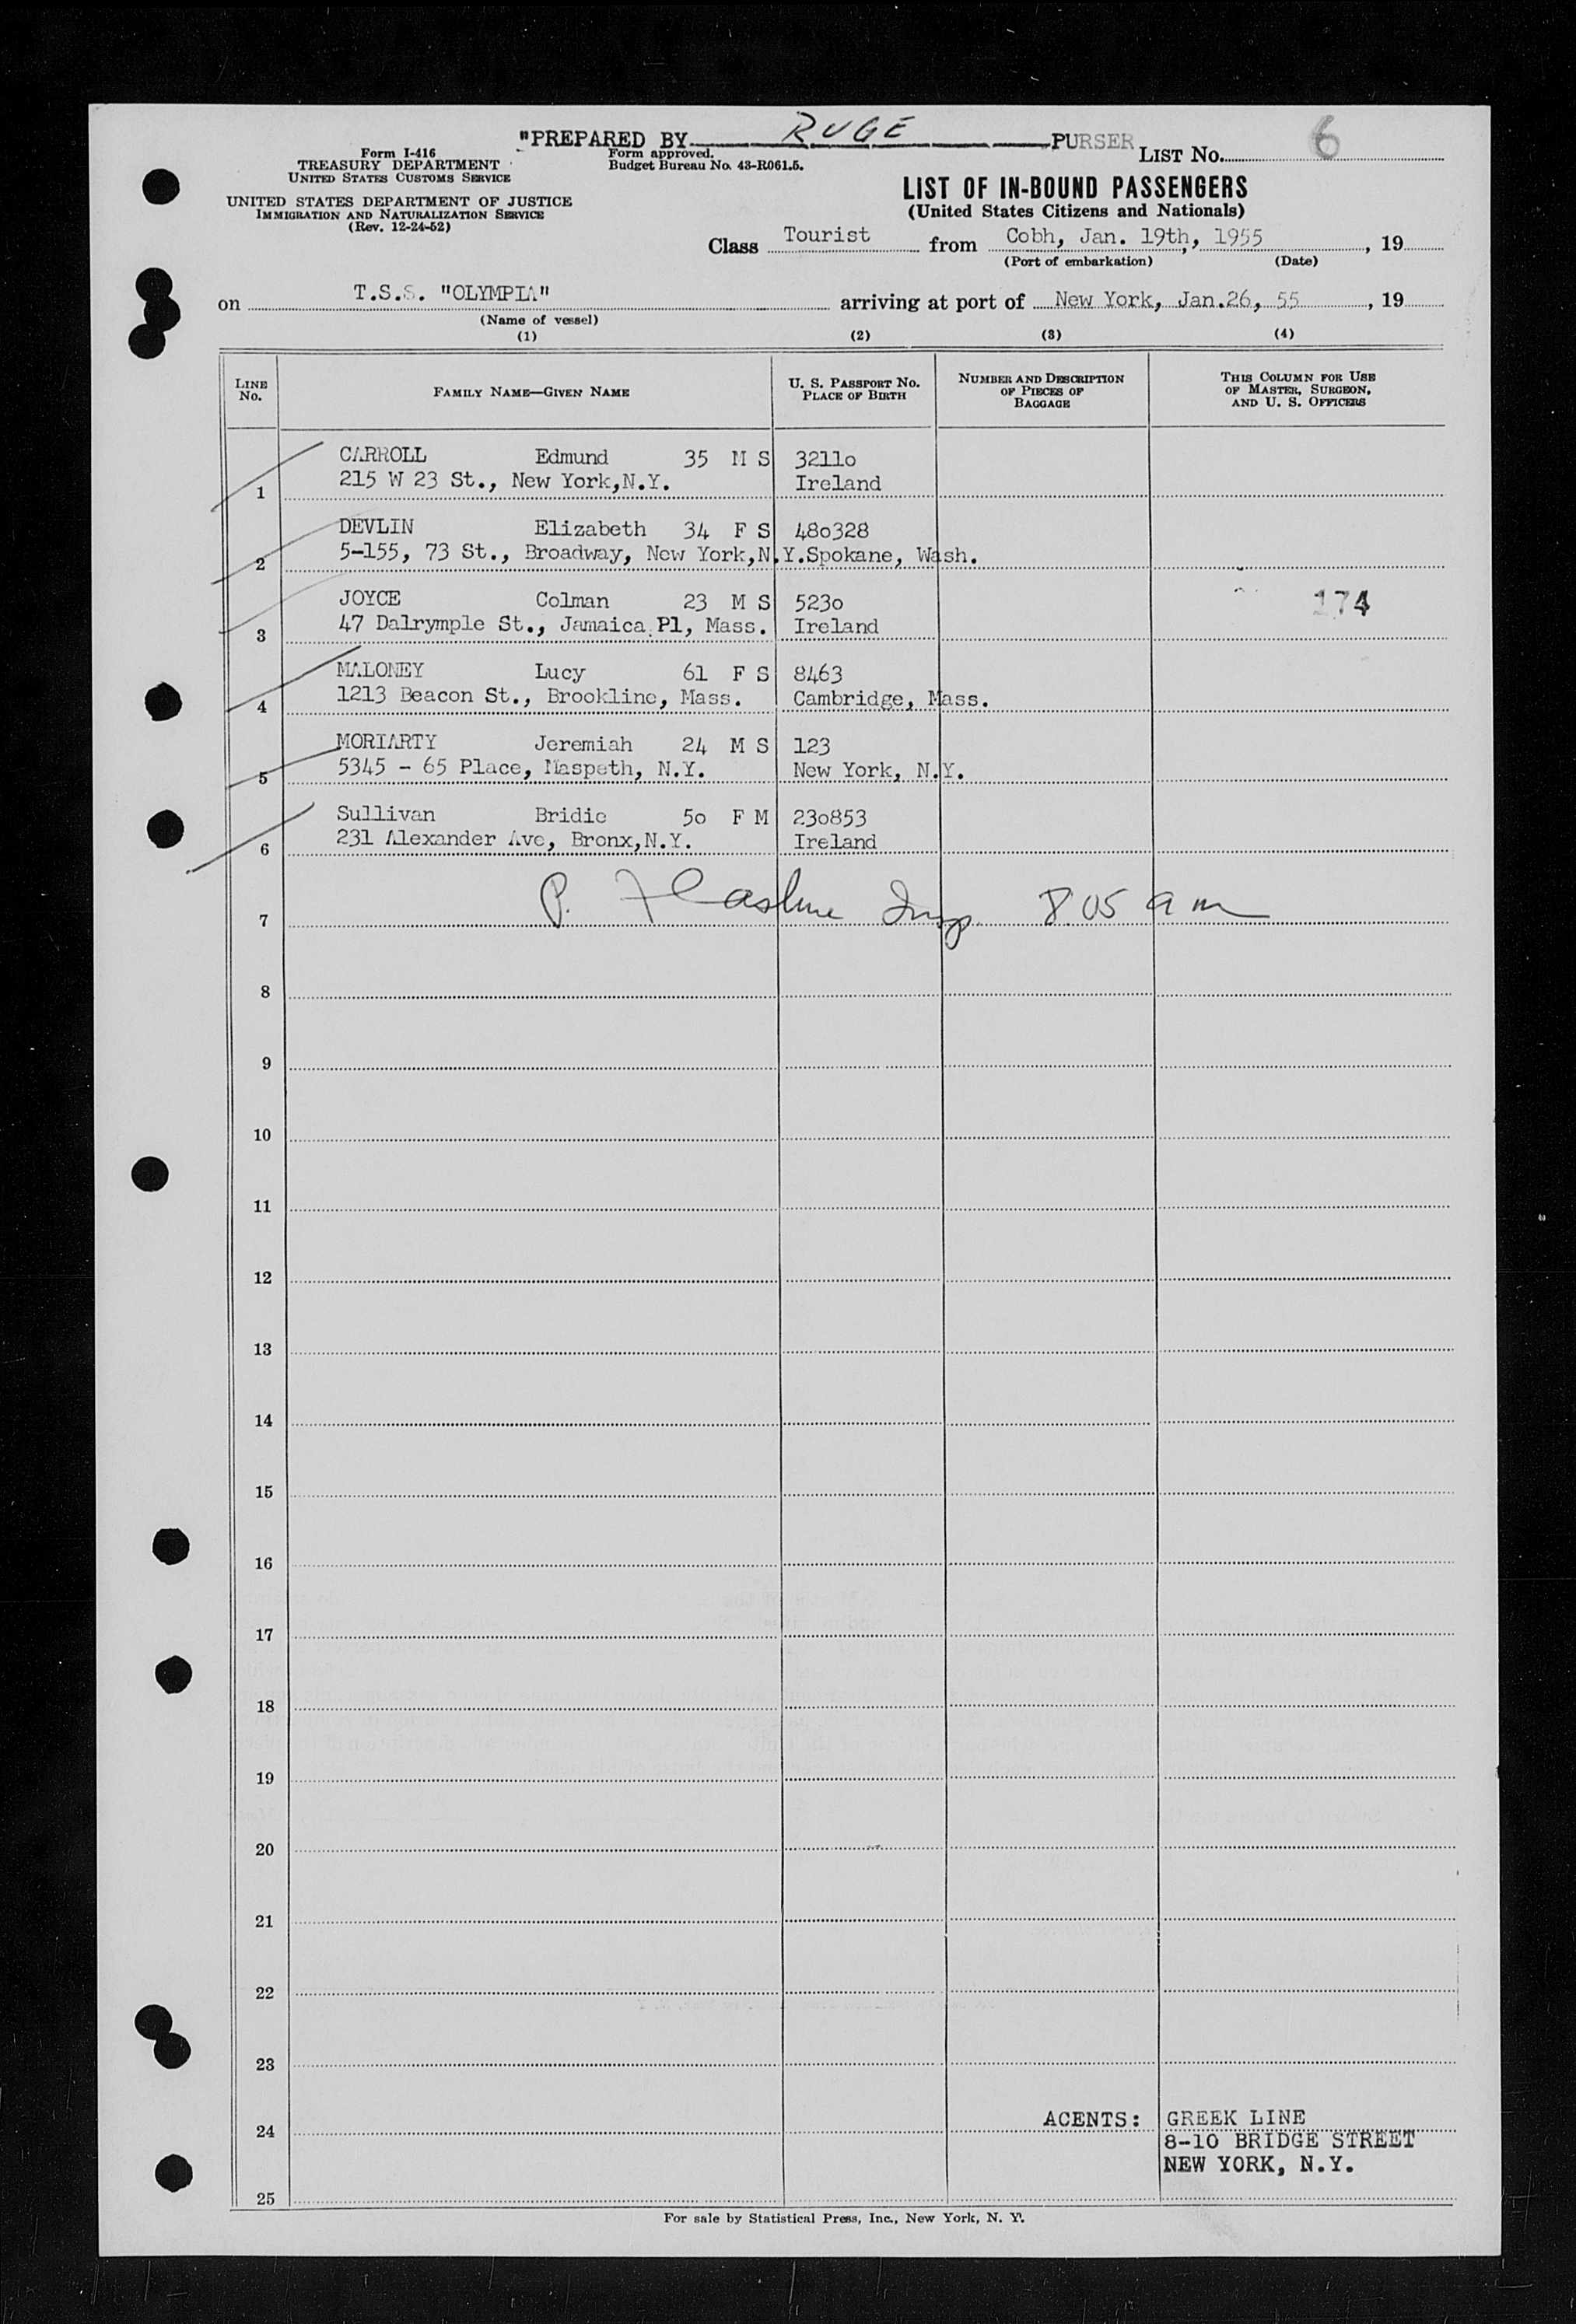 "PREPARED BY RUGE PURSER
Form I-416
TREASURY DEPARTMENT
UNITED STATES CUSTOMS SERVICE
UNITED STATES DEPARTMENT OF JUSTICE
IMMIGRATION AND NATURALIZATION SERVICE
(Rev. 12-24-52)
Form approved.
Budget Bureau No. 43-R061.5.
LIST No. 6
LIST OF IN-BOUND PASSENGERS
(United States Citizens and Nationals)
Class Tourist from Cobh, Jan. 19th, 1955, 19
(Port of embarkation) (Date)
on T.S.S. "OLYMPIA" arriving at port of New York, Jan.26, 55, 19
(Name of vessel)
(1) (2) (3) (4)
LINE No. FAMILY NAME—GIVEN NAME U. S. PASSPORT No. PLACE OF BIRTH NUMBER AND DESCRIPTION OF PIECES OF BAGGAGE THIS COLUMN FOR USE OF MASTER, SURGEON, AND U. S. OFFICERS
CARROLL Edmund 35 M S 3211o
1 215 W 23 St., New York,N.Y. Ireland
DEVLIN Elizabeth 34 F S 48o328
2 5-155, 73 St., Broadway, New York,N.Y.Spokane, Wash.
JOYCE Colman 23 M S 523o 174
3 47 Dalrymple St., Jamaica Pl, Mass. Ireland
MALONEY Lucy 61 F S 8463
4 1213 Beacon St., Brookline, Mass. Cambridge, Mass.
MORIARTY Jeremiah 24 M S 123
5 5345 - 65 Place, Maspeth, N.Y. New York, N.Y.
Sullivan Bridie 5o F M 23o853
6 231 Alexander Ave, Bronx,N.Y. Ireland
7 P. Insp. 8 05 a m
8
9
10
11
12
13
14
15
16
17
18
19
20
21
22
23
24 ACENTS: GREEK LINE
8-10 BRIDGE STREET
NEW YORK, N.Y.
25
For sale by Statistical Press, Inc., New York, N. Y.